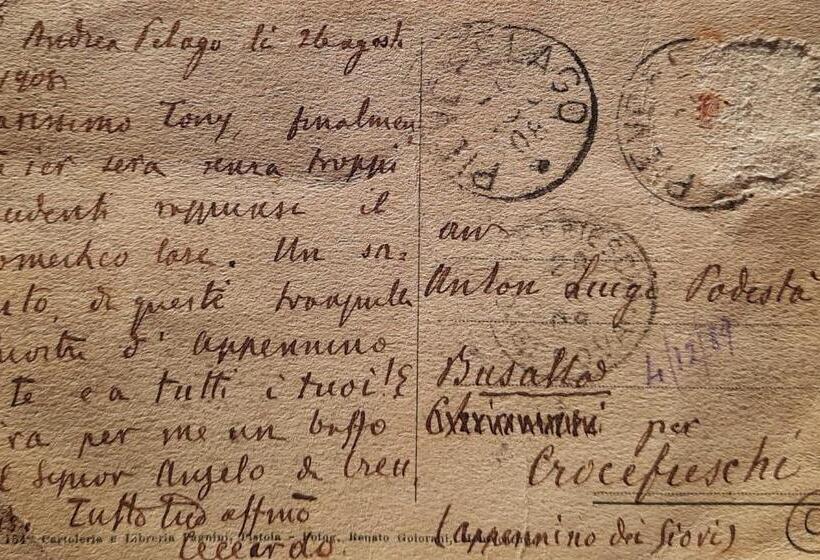 Andrea Pelago li 26 agosto
1908
arissimo Tony, finalmen
ier sera senza troppi
identi raggiunsi il
omestico lare. Un sa=
uto, da questi tranquilli
d'appennino
te e a tutti i tuoi! E
ra per me un baffo
Signor Angelo da Crev
Tutto tuo affmo
PIEVEPELAGO
avv
Anton Luigi Podestà
Busalla
4/12/89
per
Crocefieschi
(appennino dei Giovi)
Cartoleria e Libreria Pagnini, Pistoia - Fotog. Renato